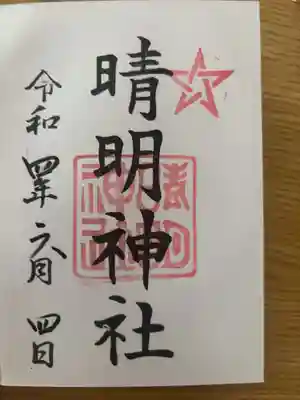 晴明神社
令和四年六月四日
晴明
神社